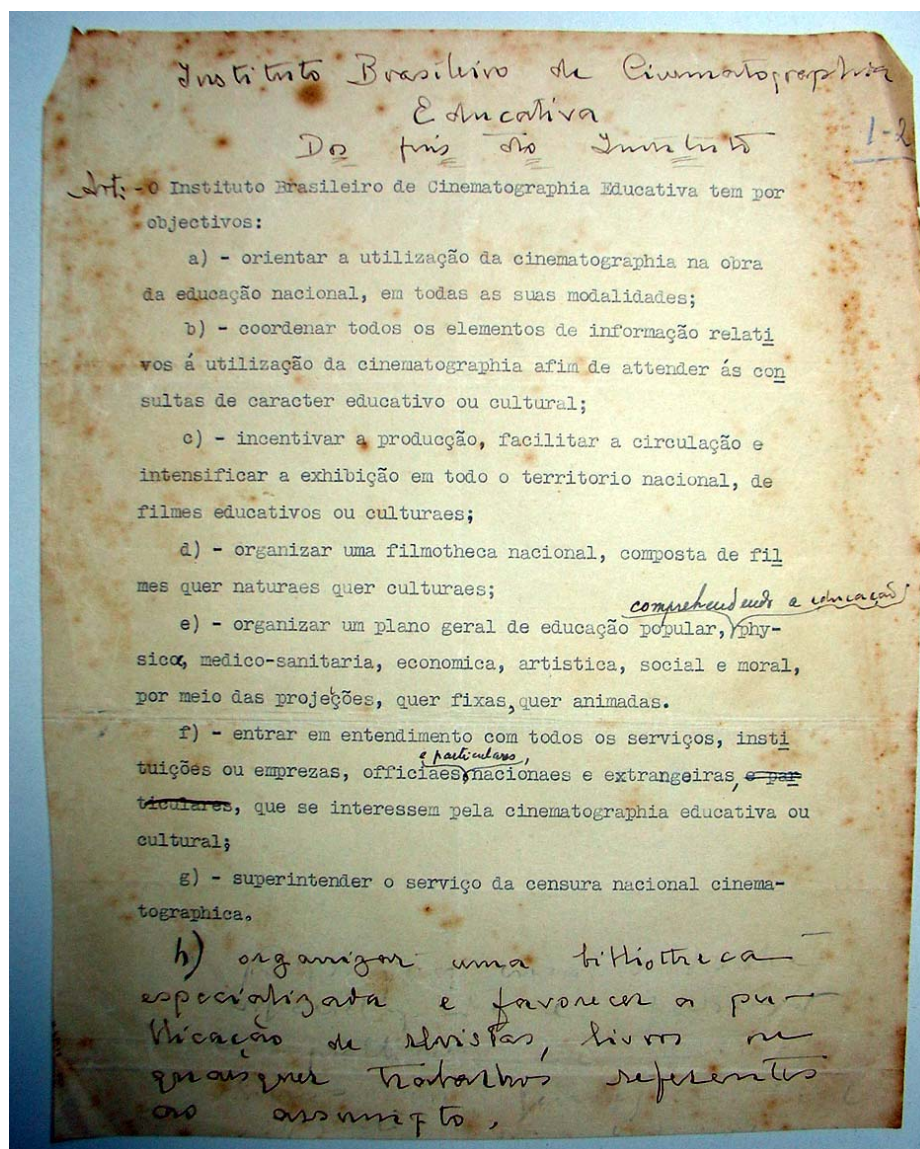 Instituto Brasileiro de Cinematographia
Educativa
Dos fins do Instituto
1-2
Art: - O Instituto Brasileiro de Cinematographia Educativa tem por
objectivos:
a) - orientar a utilização da cinematographia na obra
da educação nacional, em todas as suas modalidades;
b) - coordenar todos os elementos de informação relati
vos á utilização da cinematographia afim de attender ás con
sultas de caracter educativo ou cultural;
c) - incentivar a producção, facilitar a circulação e
intensificar a exhibição em todo o territorio nacional, de
filmes educativos ou culturaes;
d) - organizar uma filmotheca nacional, composta de fil
mes quer naturaes quer culturaes;
comprehendendo a educação
e) - organizar um plano geral de educação popular, phy-
sica, medico-sanitaria, economica, artistica, social e moral,
por meio das projecções, quer fixas, quer animadas.
f) - entrar em entendimento com todos os serviços, insti
e particulares,
tuições ou emprezas, officiaes nacionaes e extrangeiras, e par
ticulares, que se interessem pela cinematographia educativa ou
cultural;
g) - superintender o serviço da censura nacional cinema-
tographica.
h) organizar uma bibliotheca
especializada e favorecer a pu-
blicação de revistas, livros ou
quaisquer trabalhos referentes
ao assumpto.